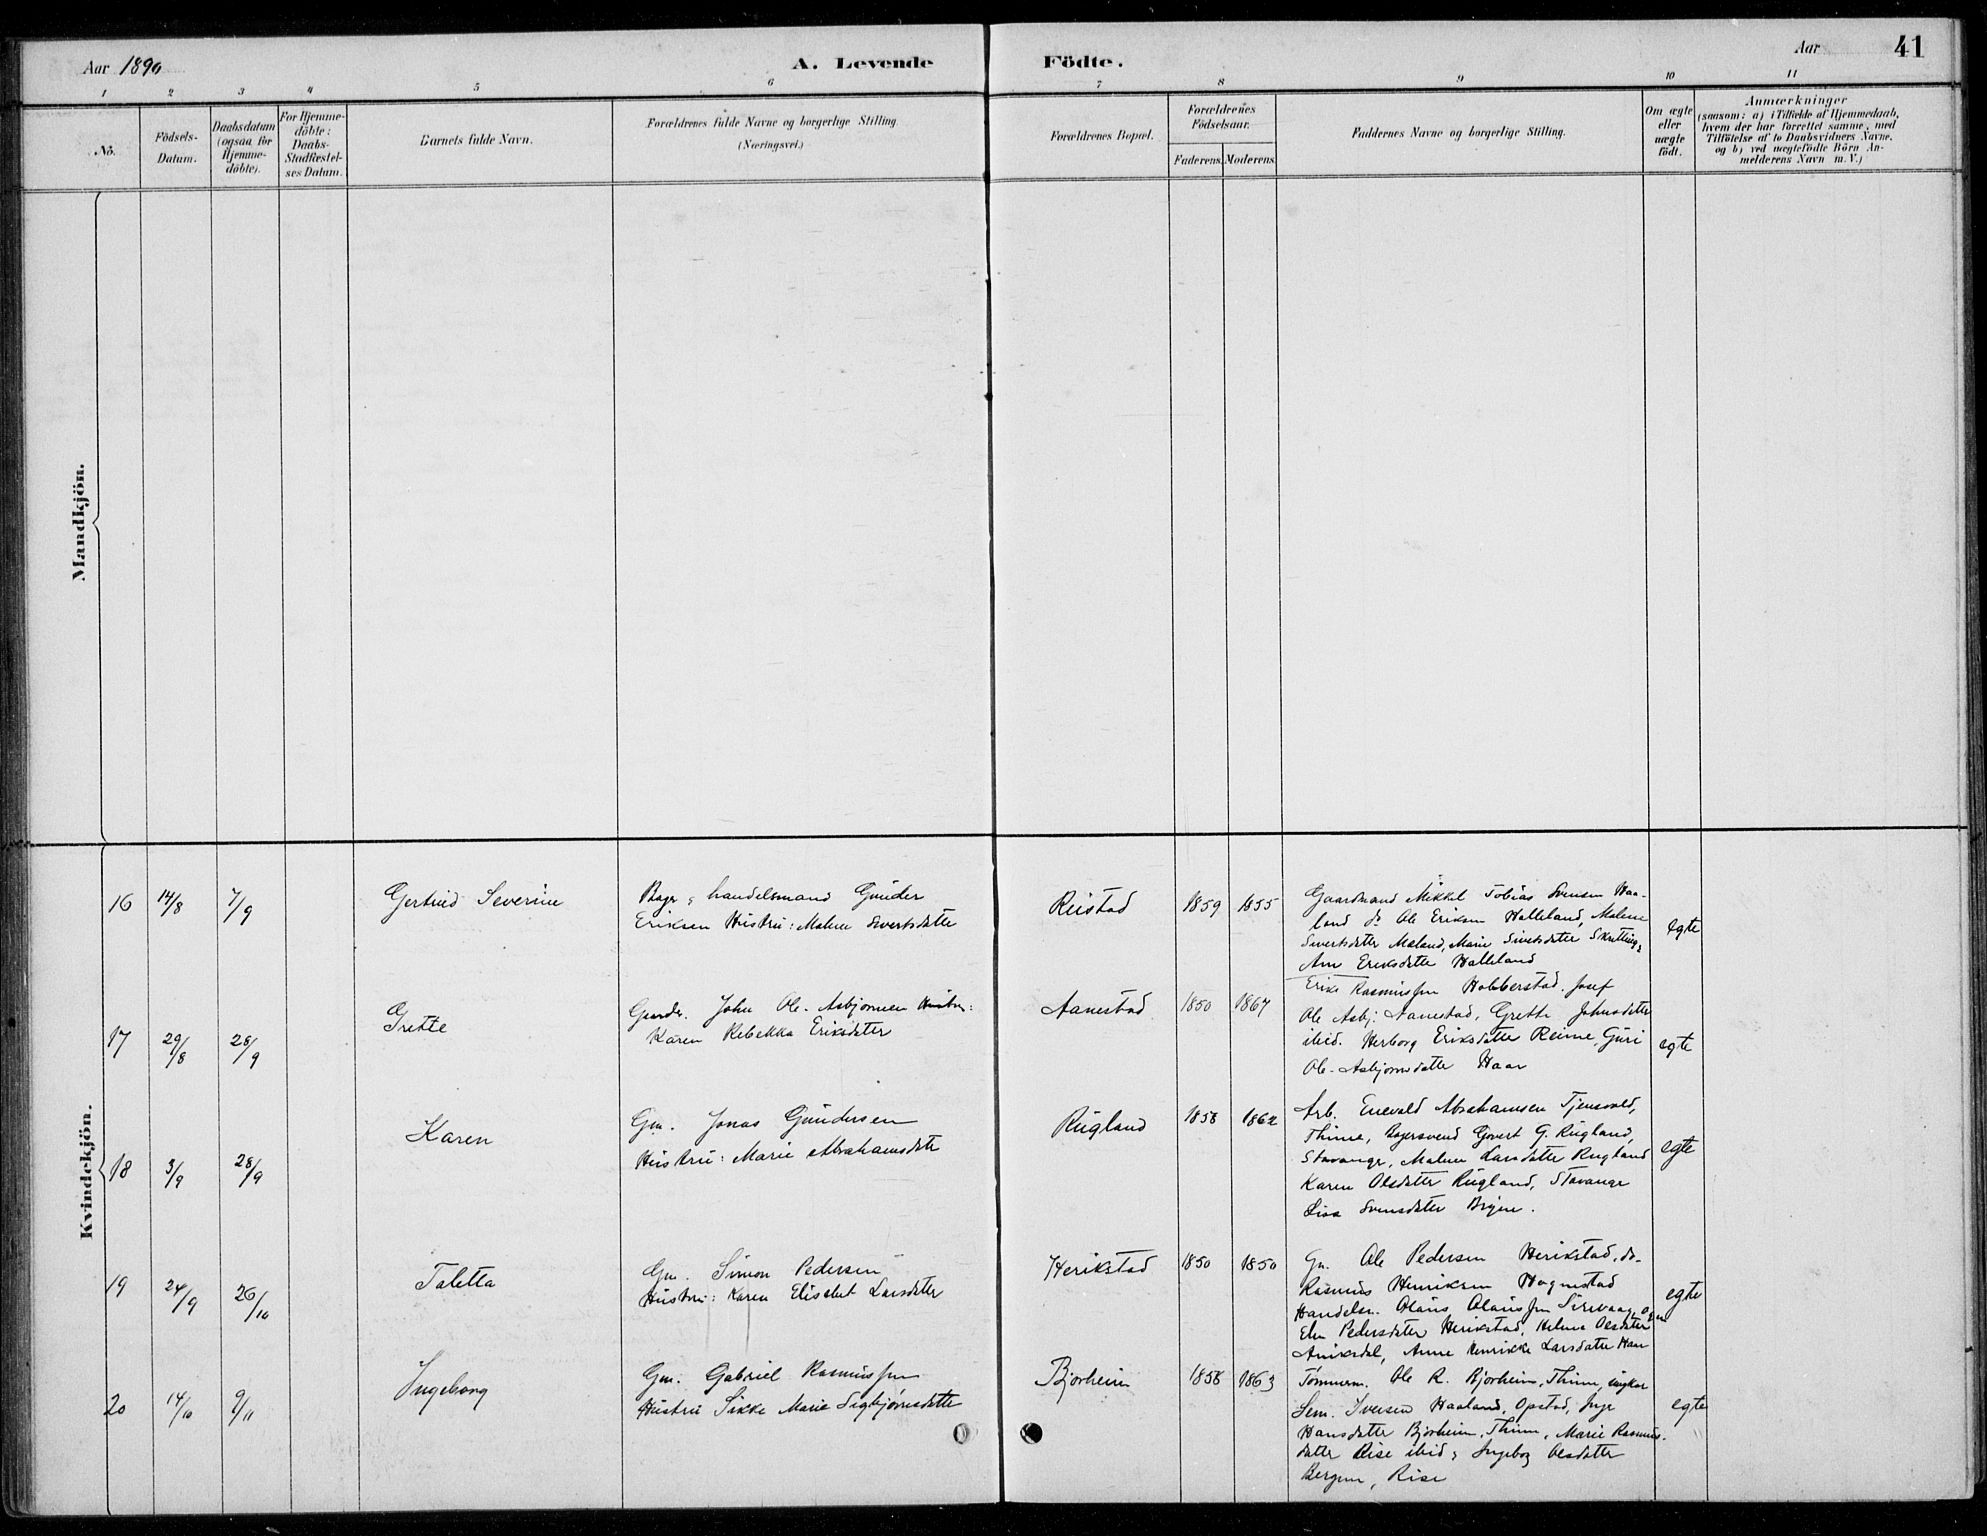 Aar 1890
A. Levende Födte.
Aar
41
1 2 3 4 5 6 7 8 9 10 11
No.
Födsels-
Datum.
Daabsdatum
(ogsaa for
Hjemme-
döbte).
For Hjemme-
döbte:
Daabs-
Stadfestel-
ses Datum.
Barnets fulde Navn.
Forældrenes fulde Navne og borgerlige Stilling.
(Næringsvei.)
Forældrenes Bopæl.
Forældrenes
Födselsaar.
Faderens. Moderens.
Faddernes Navne og borgerlige Stilling.
Om ægte
eller
uægte
födt.
Anmærkninger
(saasom: a) i Tilfælde af Hjemmedaab,
hvem der har forrettet samme, med
Tilföielse af to Daabsvidners Navne.
og b) ved uægtefödte Börn An-
melderens Navn m. V.)
Mandkjön.
Kvindekjön.
16 14/8 7/9
Gertrud Severine
Bager & handelsmand Gunder
Eriksen Hustru: Malene Sivertsdatter
Reistad
1859 1855
Gaardmand Mikkel Tobias Svensen Haa-
land do Ole Eriksen Halleland, Malene
Sivertsdatter Maland, Marie Sivertsdatter Skretting &
Ane Eriksdatter Halleland
egte
17 29/8 28/9
Grette
John Ole. Asbjornsen Hustru:
Karen Rebekka Eriksdatter
Aanestad
1850 1867
Erik Rasmussen Hobberstad. Josef
Ole Asbj. Aanestad, Grette Johnsdatter
ibid. Herborg Eriksdatter Reime, Guri
Ole. Asbjornsdatter Haar
egte
18 3/9 28/9
Karen
Gm. Jonas Gundersen
Hustru: Marie Abrahamsdatter
Rugland
1858 1862
Arb. Enevald Abrahamsen Tjensvold,
Thime, Bagersvend Govert G. Rugland,
Stavanger, Malene Larsdatter Rugland
Karen Olsdatter Rugland, Stavanger
Lisa Svensdatter
egte
19 24/9 26/10
Taletta
Gm. Simon Pedersen
Hustru: Karen Elisebet Larsdatter
Herikstad
1850 1850
Gm. Ole Pedersen Herikstad, do-
Rasmus Henriksen Hognestad
Handelsm. Olaus Olaussen Sirevaag, Ogn
Elen Pedersdatter Herikstad, Helene Olsdatter
Aniksdal, Anne Henrikke Larsdatter Haar
egte
20 14/10 9/11
Ingeborg
Gm. Gabriel Rasmussen
Hustru Sikke Marie Sigbjørnsdatter
Bjorheim
1858 1863
Tømmerm. Ole R. Bjorheim, Thime, ungkar
Sem. Iversen Haaland, Opstad, Inge
Hansdatter Bjorheim, Thime, Marie Rasmus-
datter Rise ibid & Ingebor Olsdatter
Rise
egte